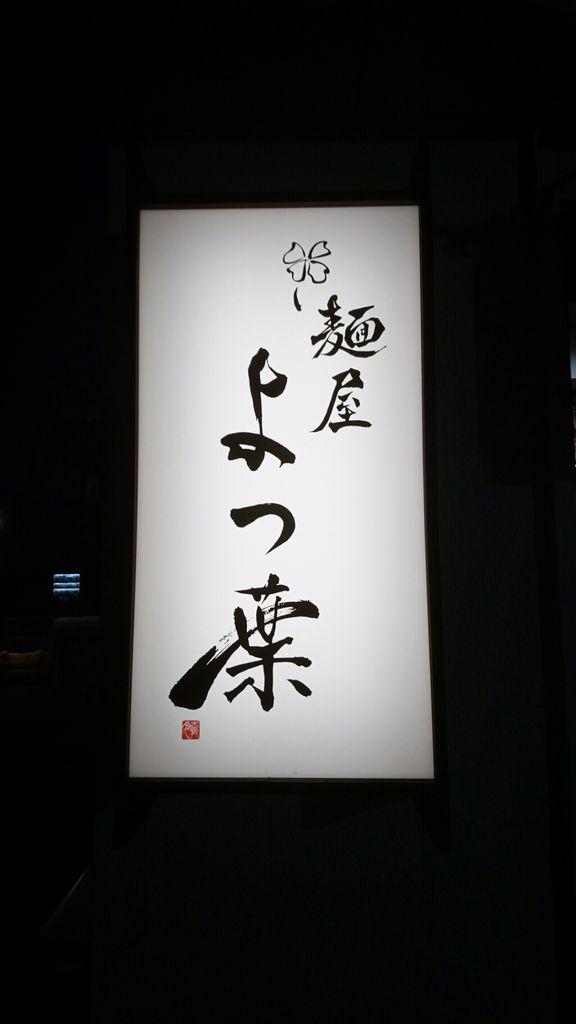 麺屋
よつ葉